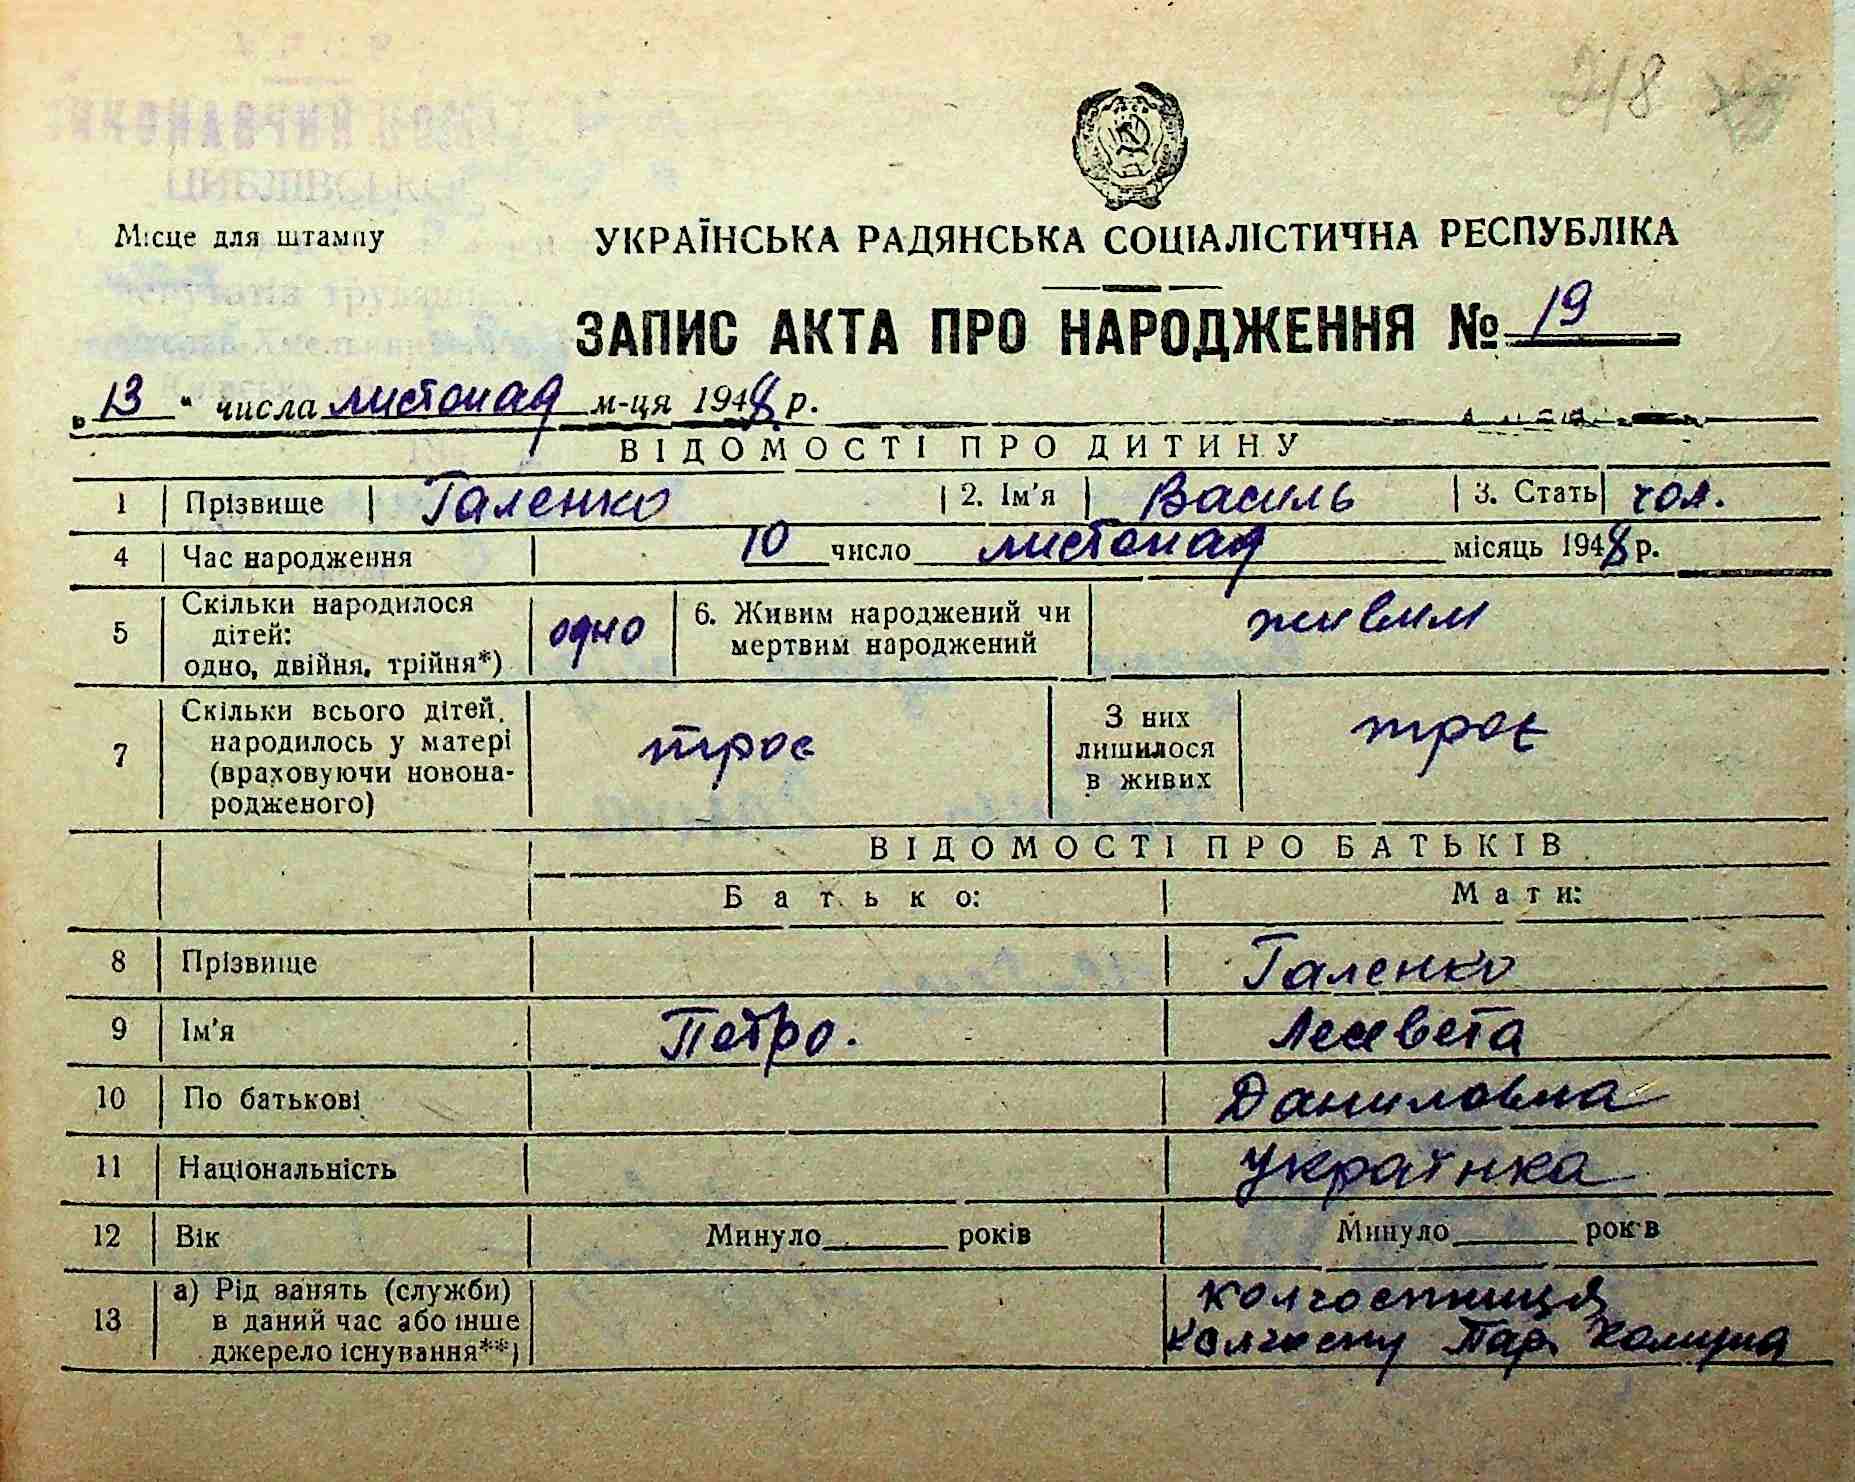 218
Місце для штампу
УКРАЇНСЬКА РАДЯНСЬКА СОЦІАЛІСТИЧНА РЕСПУБЛІКА
ЗАПИС АКТА ПРО НАРОДЖЕННЯ № 19
„13" числа листопад м-ця 1948 р.
ВІДОМОСТІ ПРО ДИТИНУ
1 Прізвище Галенко 2. Ім'я Василь 3. Стать чол.
4 Час народження 10 число листопад місяць 1948 р.
5 Скільки народилося дітей: одно, двійня, трійня*) одно 6. Живим народжений чи мертвим народжений живим
7 Скільки всього дітей народилось у матері (враховуючи новонародженого) троє З них лишилося в живих троє
ВІДОМОСТІ ПРО БАТЬКІВ
Батько: Мати:
8 Прізвище Галенко
9 Ім'я Петро. Лисвета
10 По батькові Даниловна
11 Національність Українка
12 Вік Минуло____років Минуло____років
13 а) Рід занять (служби) в даний час або інше джерело існування**) колгоспниця
колгоспу Пар. Комуна